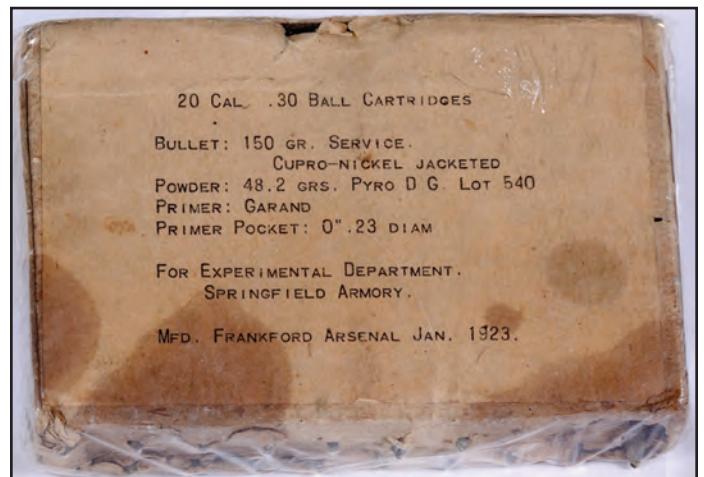 20 Cal. .30 Ball Cartridges
Bullet: 150 gr. Service.
Cupro-nickel jacketed
Powder: 48.2 grs. Pyro D G. Lot 540
Primer: Garand
Primer Pocket: 0".23 diam
For Experimental Department.
Springfield Armory.
Mfd. Frankford Arsenal Jan. 1923.